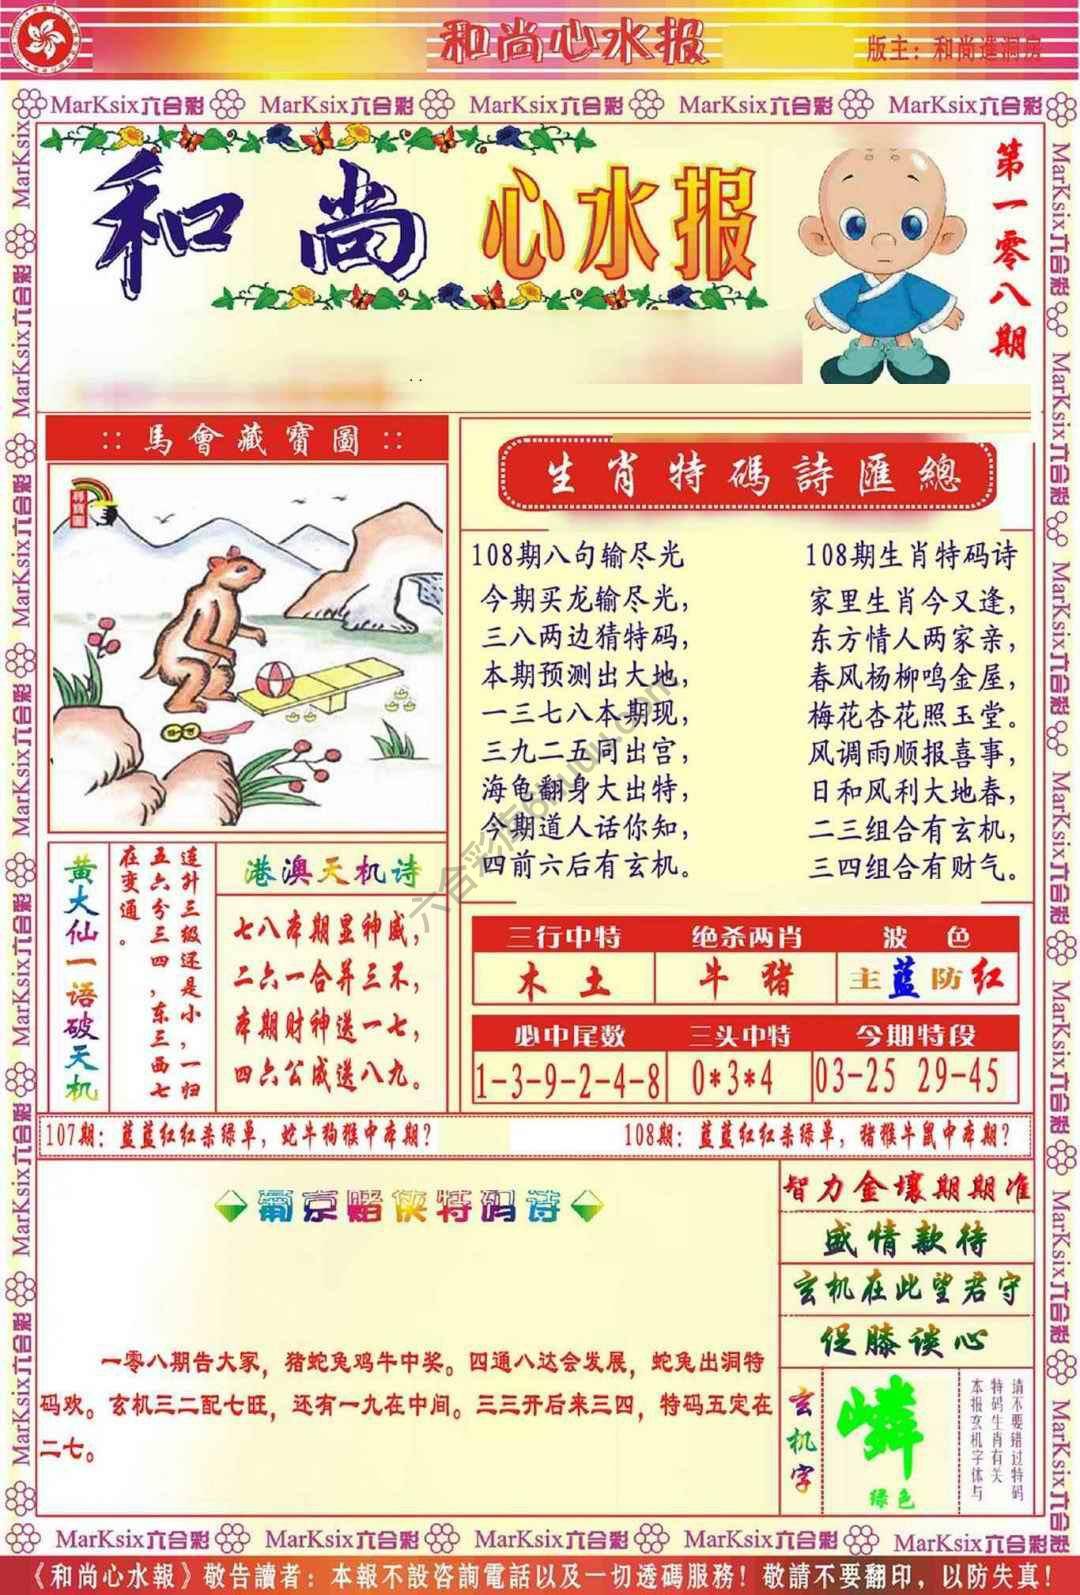 和尚心水报
版主：和尚進洞房
MarKsix六合彩 MarKsix六合彩 MarKsix六合彩 MarKsix六合彩 MarKsix六合彩
和尚心水报
第一零八期
:: 馬會藏寶圖 ::
尋寶圖
生肖特碼詩匯總
108期八句输尽光
今期买龙输尽光，
三八两边猜特码，
本期预测出大地，
一三七八本期现，
三九二五同出宫，
海龟翻身大出特，
今期道人话你知，
四前六后有玄机。
108期生肖特码诗
家里生肖今又逢，
东方情人两家亲，
春风杨柳鸣金屋，
梅花杏花照玉堂。
风调雨顺报喜事，
日和风利大地春，
二三组合有玄机，
三四组合有财气。
黄大仙一语破天机
连升三级还是小，一归
五六分三四，东三西七
在变通。
港澳天机诗
七八本期显神威，
二六一合并三不，
本期财神送一七，
四六公成送八九。
三行中特 绝杀两肖 波色
木土 牛猪 主蓝防红
必中尾数 三头中特 今期特段
1-3-9-2-4-8 0*3*4 03-25 29-45
107期：蓝蓝红红杀绿单，蛇牛狗猴中本期？
108期：蓝蓝红红杀绿单，猪猴牛鼠中本期？
葡京赌侠特码诗
一零八期告大家，猪蛇兔鸡牛中奖。四通八达会发展，蛇兔出洞特
码欢。玄机三二配七旺，还有一九在中间。三三开后来三四，特码五定在
二七。
智力金壤期期准
盛情款待
玄机在此望君守
促膝谈心
玄机字
嶙
绿色
请不要错过特码
特码生肖有关
本报玄机字体与
MarKsix六合彩 MarKsix六合彩 MarKsix六合彩 MarKsix六合彩 MarKsix六合彩
《和尚心水報》敬告讀者：本報不設咨詢電話以及一切透碼服務！敬請不要翻印，以防失真！